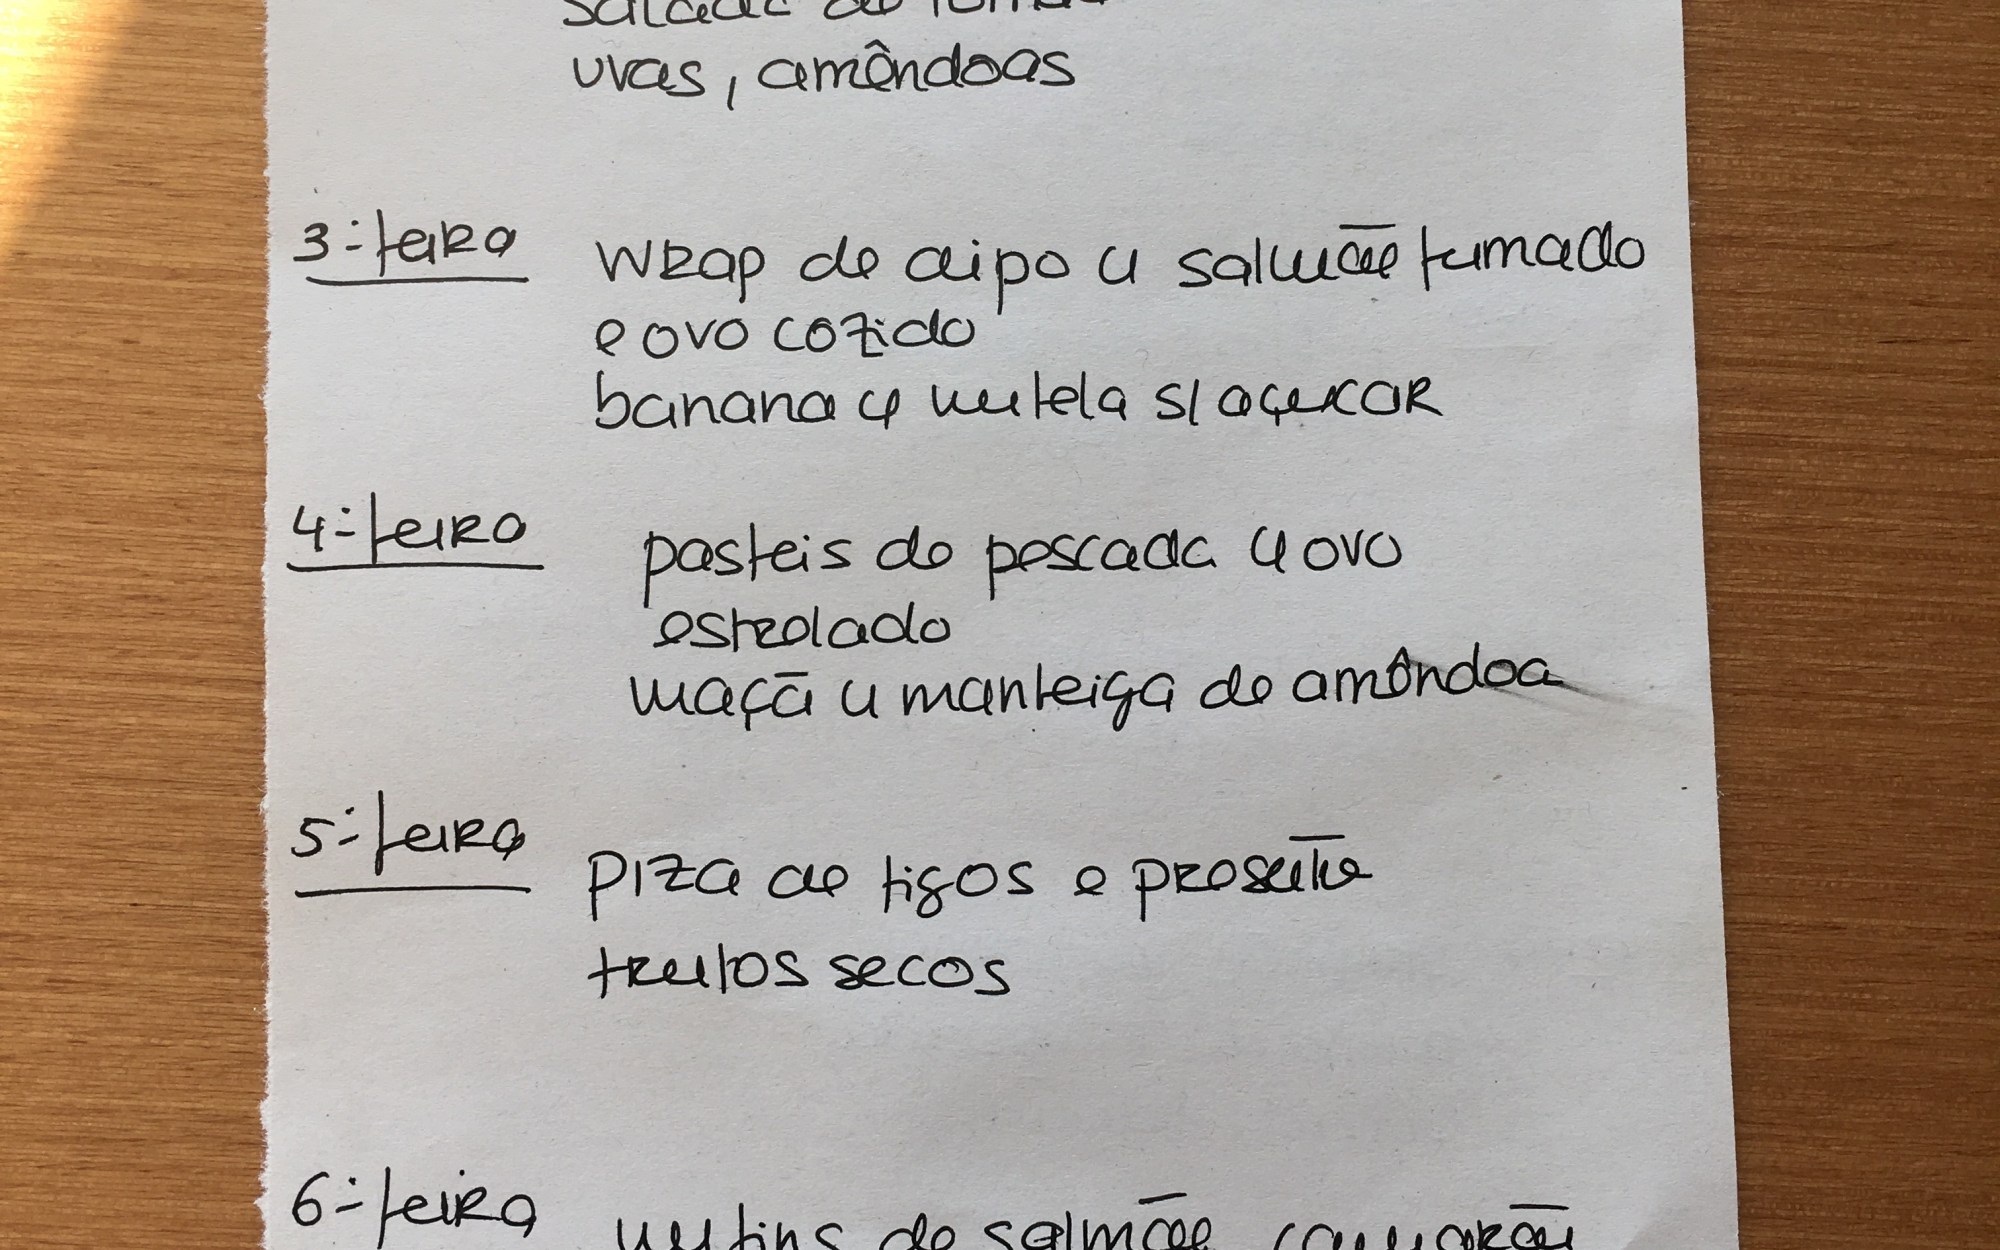 salada de
uvas, amêndoas
3ª-feira
wrap de aipo c/ salmão fumado
e ovo cozido
banana c/ nutela s/ açucar
4ª-feira
pasteis de pescada c/ ovo
estrelado
maçã c/ manteiga de amêndoa
5ª-feira
piza de figos e
frutos secos
6ª-feira
de salmão camarão